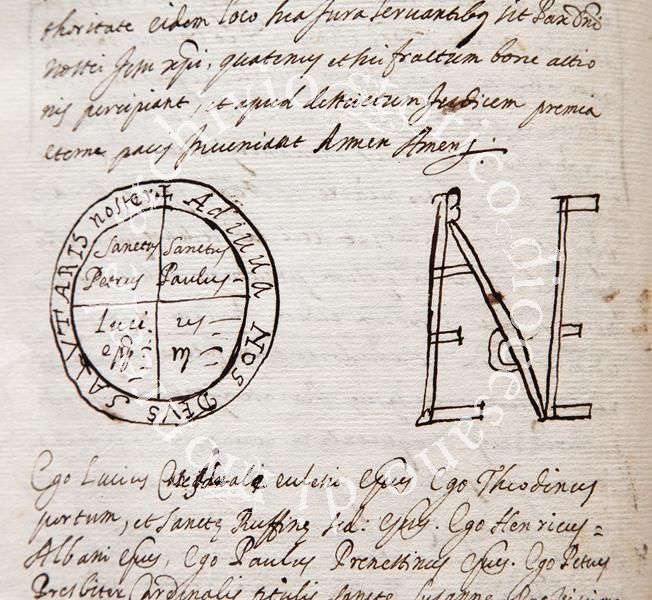 thoritate eidem loco sua jura servantibus sit Pax Dni
nostri Jesu xpi, quatenus et hic fructum bone actio
nis percipiant et apud districtum Judicem premia
eterne pacis inveniant Amen Amen
Adiuua NOS DEVS SALVTARIS noster
Sanctus Sanctus
Petrus Paulus
Luci us
epus
Ego Lucius eclesie Epus Ego Theodinus
portum, et Sancte Ruffine sed: epus. Ego Henricus
Albani epus, Ego Paulus Prenestinus epus. Ego Petrus
Presbiter Cardinalis tituli sancte Susanne